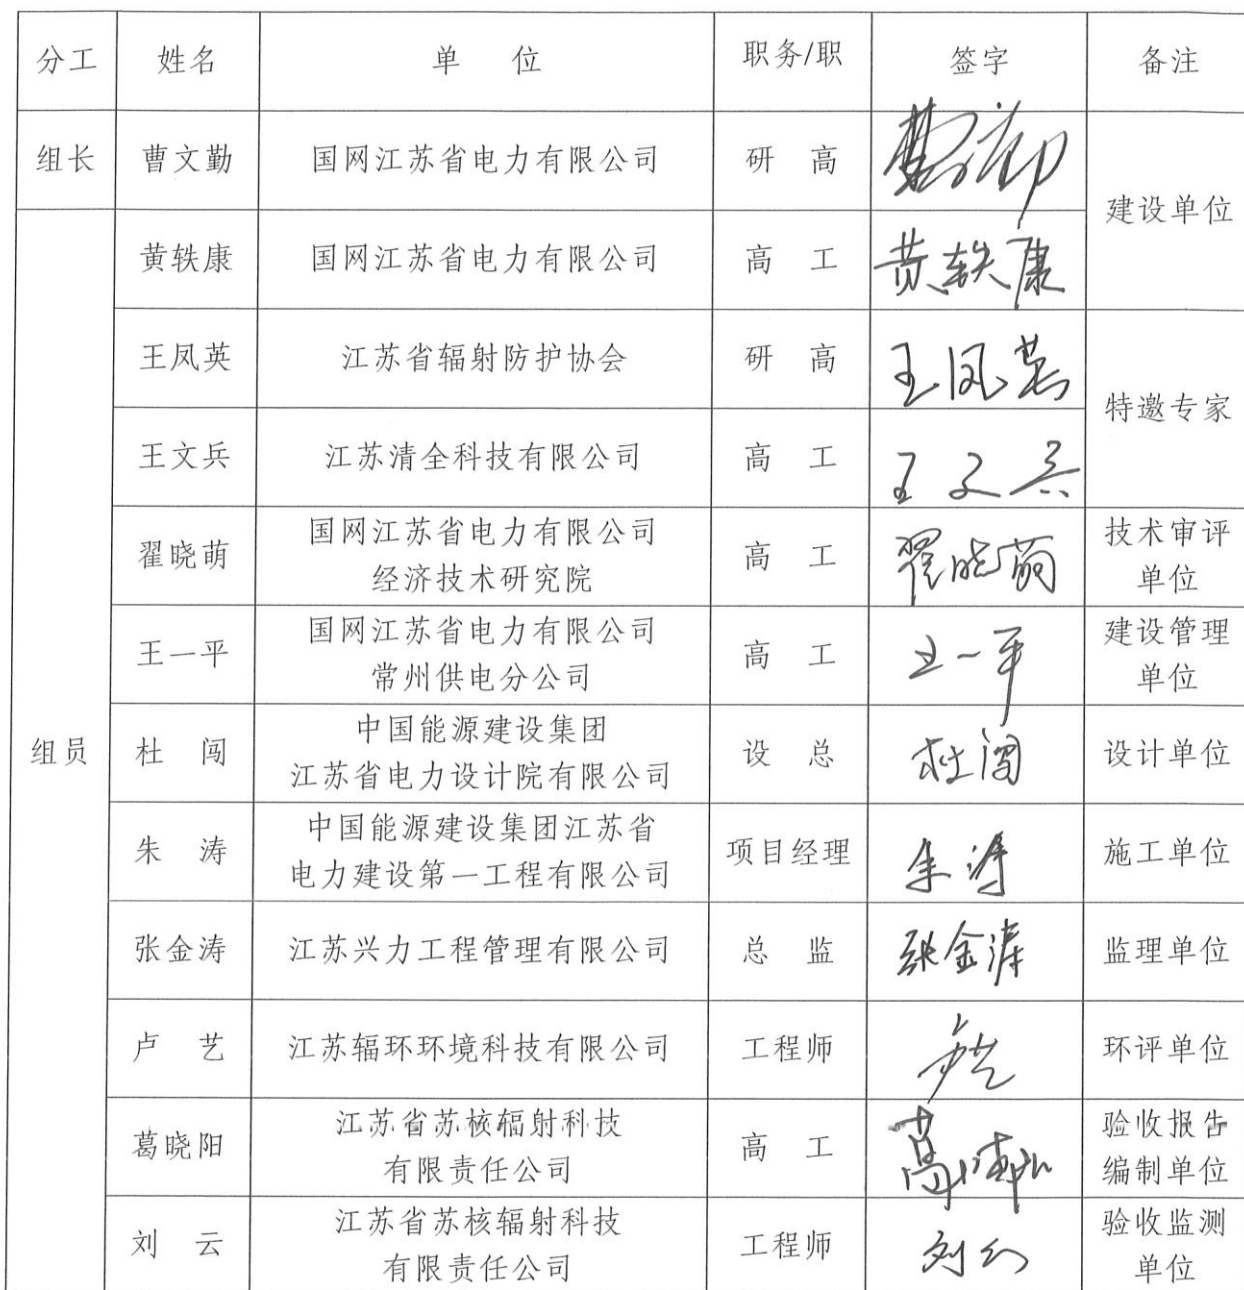 分工 姓名 单 位 职务/职 签字 备注
组长 曹文勤 国网江苏省电力有限公司 研 高
建设单位
黄轶康 国网江苏省电力有限公司 高 工 黄轶康
王凤英 江苏省辐射防护协会 研 高 王凤英
特邀专家
王文兵 江苏清全科技有限公司 高 工 王文兵
翟晓萌 国网江苏省电力有限公司
经济技术研究院 高 工 翟晓萌 技术审评
单位
王一平 国网江苏省电力有限公司
常州供电分公司 高 工 王一平 建设管理
单位
组员 杜 闯 中国能源建设集团
江苏省电力设计院有限公司 设 总 杜闯 设计单位
朱 涛 中国能源建设集团江苏省
电力建设第一工程有限公司 项目经理 朱涛 施工单位
张金涛 江苏兴力工程管理有限公司 总 监 张金涛 监理单位
卢 艺 江苏辐环环境科技有限公司 工程师 卢艺 环评单位
葛晓阳 江苏省苏核辐射科技
有限责任公司 高 工 葛晓阳 验收报告
编制单位
刘 云 江苏省苏核辐射科技
有限责任公司 工程师 刘云 验收监测
单位